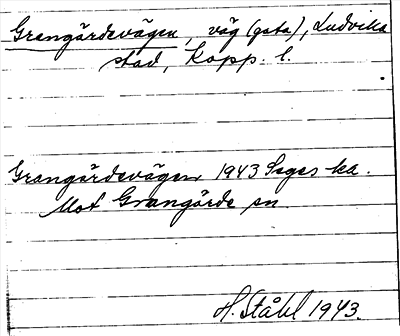 Grangärdevägen, väg (gata), Ludvika
stad, Kopp. l.
Grangärdevägen 1943 Seger ka.
Mot Grangärde sn.
H. Ståhl 1943.